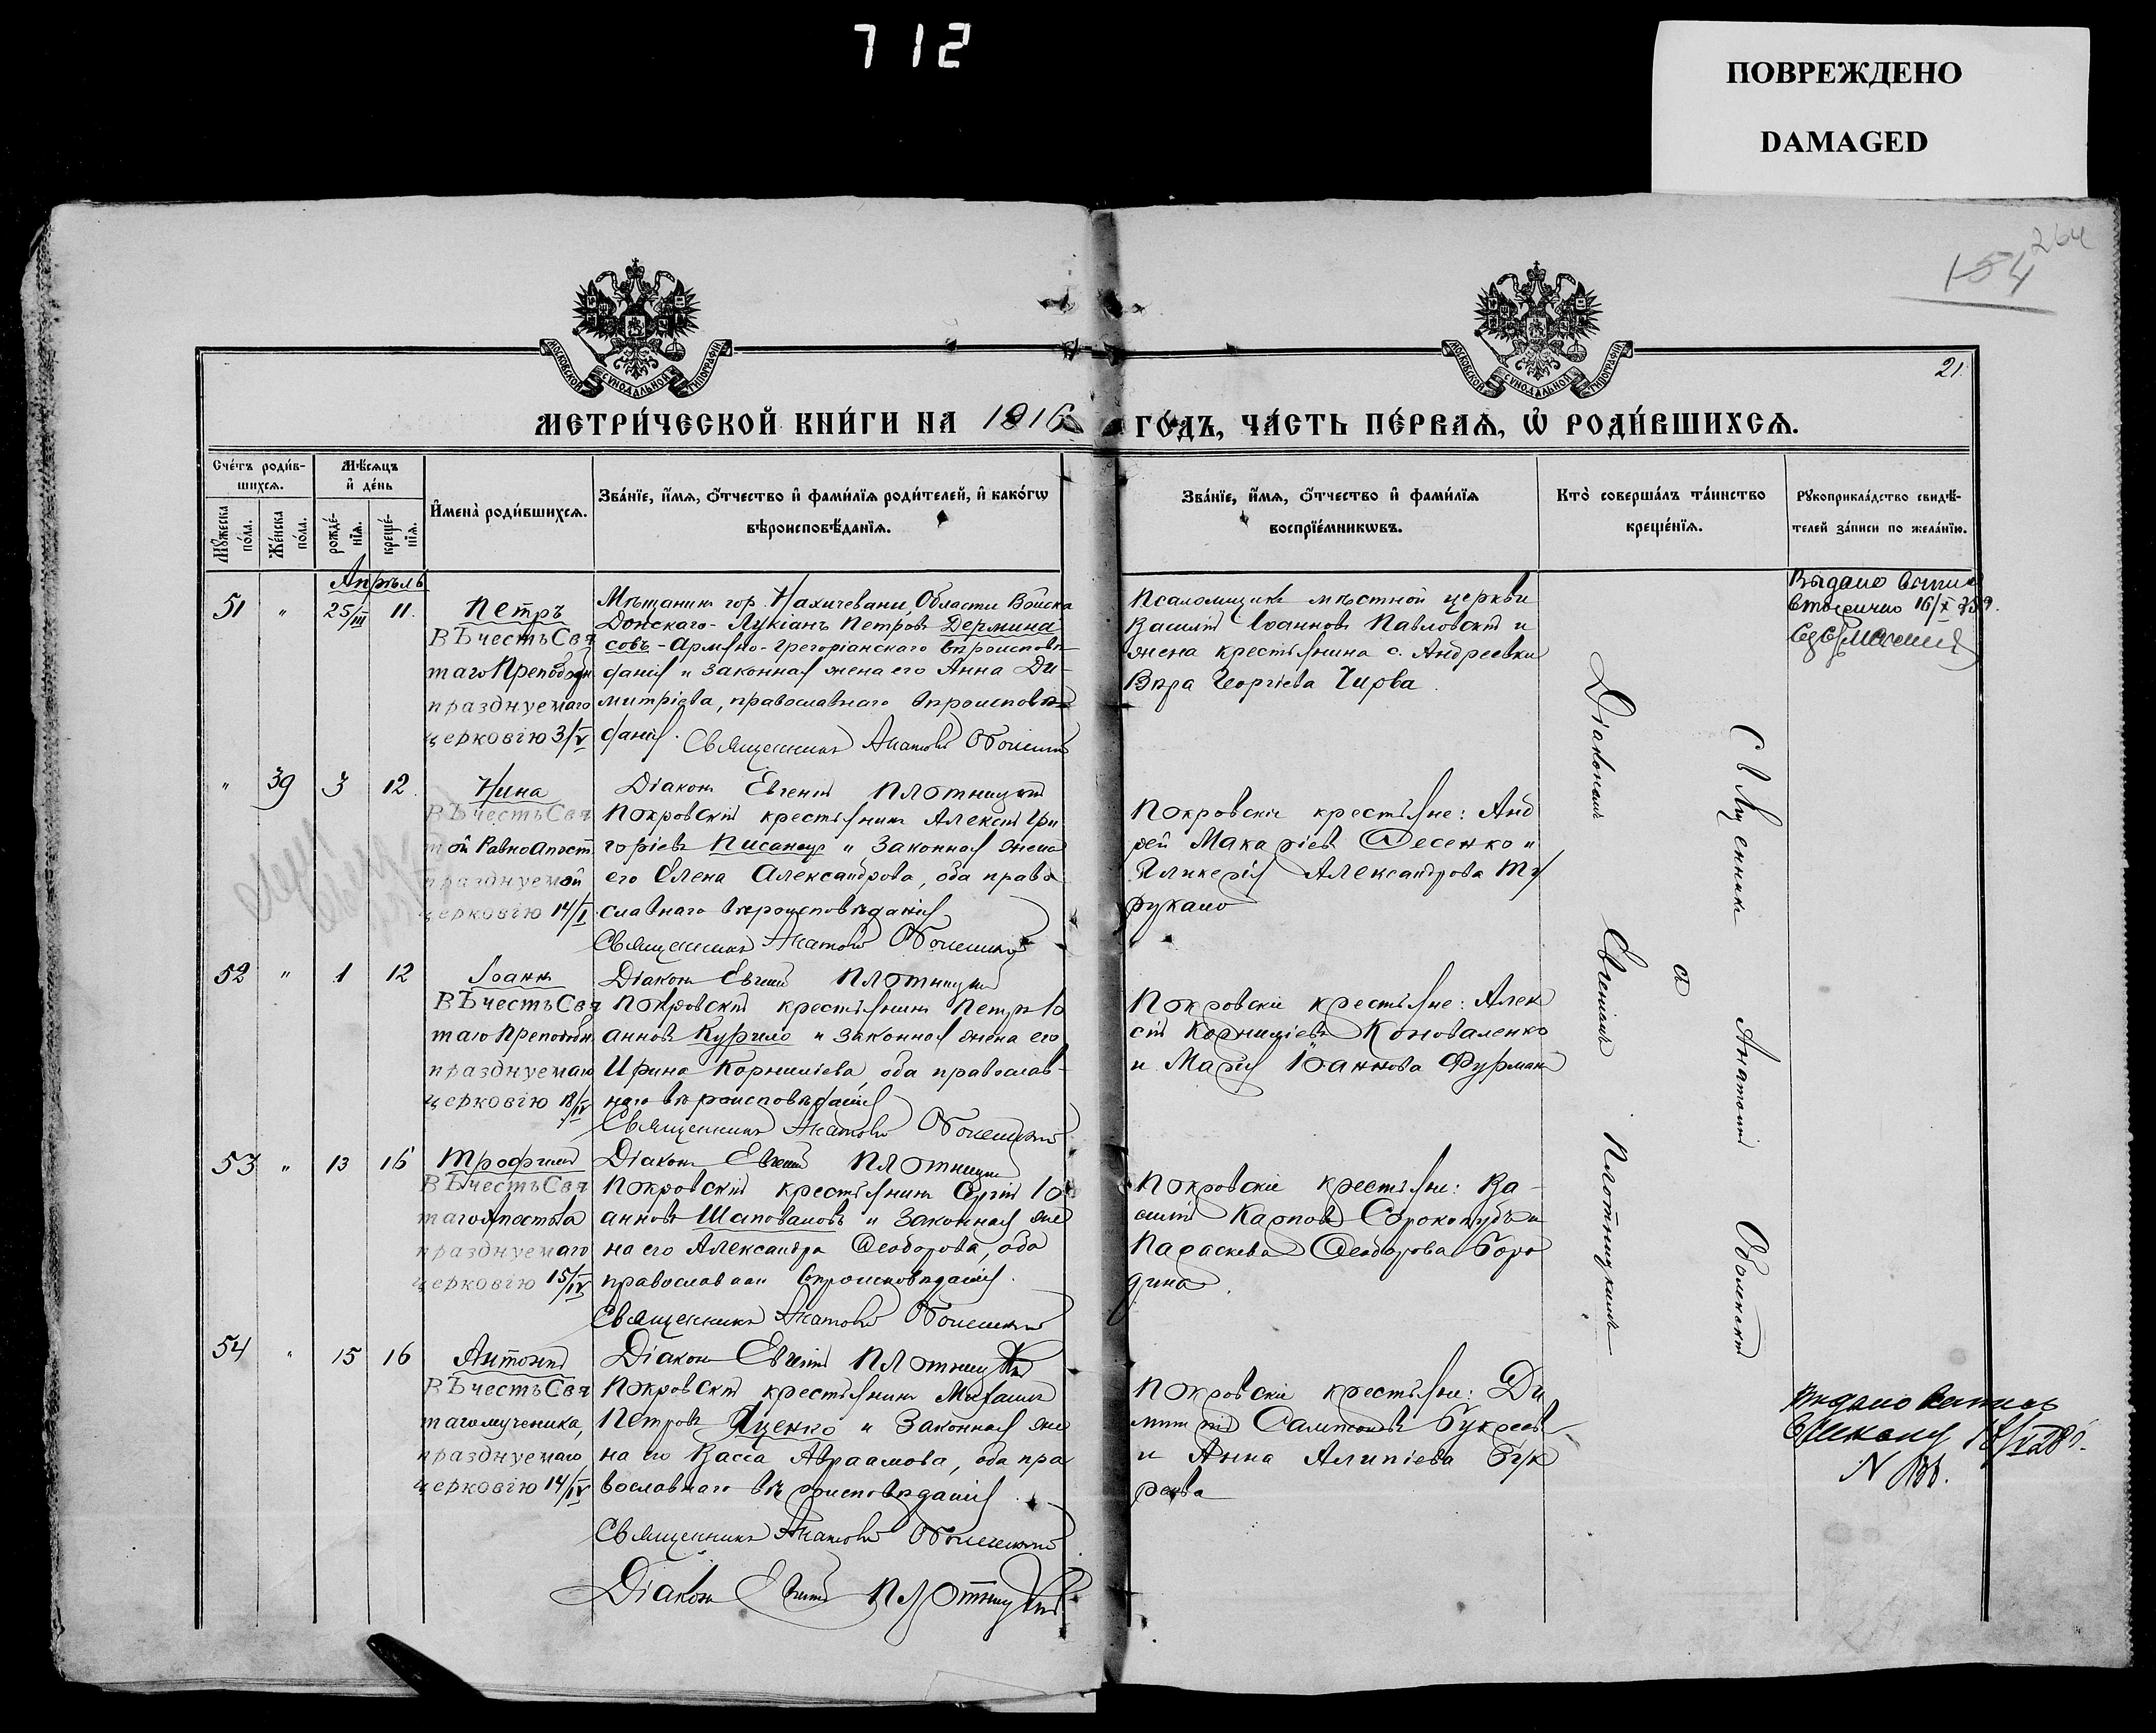 712
ПОВРЕЖДЕНО
DAMAGED
264
154
21.
МОСКОВСКОЙ СѴНОДАЛЬНОЙ ТИПОГРАФІИ
МОСКОВСКОЙ СѴНОДАЛЬНОЙ ТИПОГРАФІИ
МЕТРИ́ЧЕСКОЙ КНИ́ГИ НА 1916 ГО́ДЪ, ЧА́СТЬ ПЕ́РВАѦ, Ѡ҆ РОДИ́ВШИХСѦ.
Сче́тъ роди́в-
шихсѧ.
Мꙋ́жеска
по́ла.
Же́нска
по́ла.
Мѣ́сѧцъ
и҆ де́нь
рожде́-
нїѧ.
креще́-
нїѧ.
И҆мена̀ роди́вшихсѧ.
Зва́нїе, и҆́мѧ, ѻ҆́тчество и҆ фами́лїѧ роди́телей, и҆ како́гѡ
вѣроисповѣ́данїѧ.
Зва́нїе, и҆́мѧ, ѻ҆́тчество и҆ фами́лїѧ
воспрїе́мникѡвъ.
Кто̀ соверша́лъ та́инство
креще́нїѧ.
Рꙋкоприкла́дство свидѣ́-
телей за́писи по жела́нїю.
Апрѣль
51 " 25/III 11.
Петръ
Въ честь Свя
таго Преподобн
празднуемаго
церковію 3/IV
Мѣщанинъ гор. Нахичевани, Области Войска
Донскаго - Лукіанъ Петровъ Дермина
совъ - Армяно-Грегоріанскаго вѣроисповѣ
данія и законная жена его Анна Ди-
митріева, православнаго вѣроисповѣ
данія. Священникъ Анатолій Оболенскій
Псаломщикъ мѣстной церкви
Василій Іоанновъ Павловскій и
жена крестьянина с. Андреевки
Вѣра Георгіева Чирва.
Выдано
16/X
" 39 3 12.
Нина
Въ честь Свя
той Равноапост.
празднуемой
церковію 14/I
Діаконъ Евгеній Плотницкій
Покровскій крестьянинъ Алексій Гри
горіевъ Писанец и законная жена
его Елена Александрова, оба право
славнаго вѣроисповѣданія
Священникъ Анатолій Оболенскій
Покровскіе крестьяне: Анд
рей Макаріевъ Ѳесенко и
Гликерія Александрова
52 " 1 12
Іоаннъ
Въ честь Свя
таго Преподобн.
празднуемаго
церковію 18/IV
Діаконъ Евгеній Плотницкій
Покровскій крестьянинъ Петръ Іо
анновъ Курило и законная жена его
Ирина Корниліева оба православ-
наго вѣроисповѣданія
Священникъ Анатолій Оболенскій
Покровскіе крестьяне: Алек
сій Корниліевъ Коноваленко
и Марія Іоаннова Фурман
53 " 13 16
Трофимъ
Въ честь Свя
таго Апостола
празднуемаго
церковію 15/IV
Діаконъ Евгеній Плотницкій
Покровскій крестьянинъ Сергій Іо
анновъ Шаповаловъ и законная же
на его Александра Ѳеодорова, оба
православнаго вѣроисповѣданія.
Священникъ Анатолій Оболенскій
Покровскіе крестьяне: Ва-
силій Карповъ и
Параскева Ѳеодорова Боро
дина.
54 " 15 16
Антоній
Въ честь Свя
таго мученика,
празднуемаго
церковію 14/IV
Діаконъ Евгеній Плотницкій
Покровскій крестьянинъ Михаилъ
Петровъ Яценко и законная же
на его Васса Авраамова, оба пра
вославнаго вѣроисповѣданія
Священникъ Анатолій Оболенскій
Діаконъ Евгеній Плотницкій
Покровскіе крестьяне: Ди
митрій Сампсоновъ Букреевъ
и Анна Алипіева Бук
реева
Священникъ Анатолій Оболенскій
съ
Діакономъ Евгеніемъ Плотницкимъ